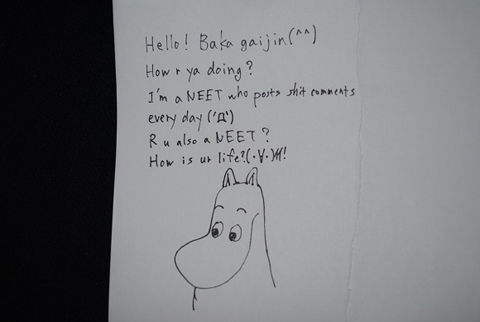 Hello! Baka gaijin(^^)
How r ya doing?
I'm a NEET who posts shit comments
every day ('Д`)
R u also a NEET?
How is ur life?(・∀・)!